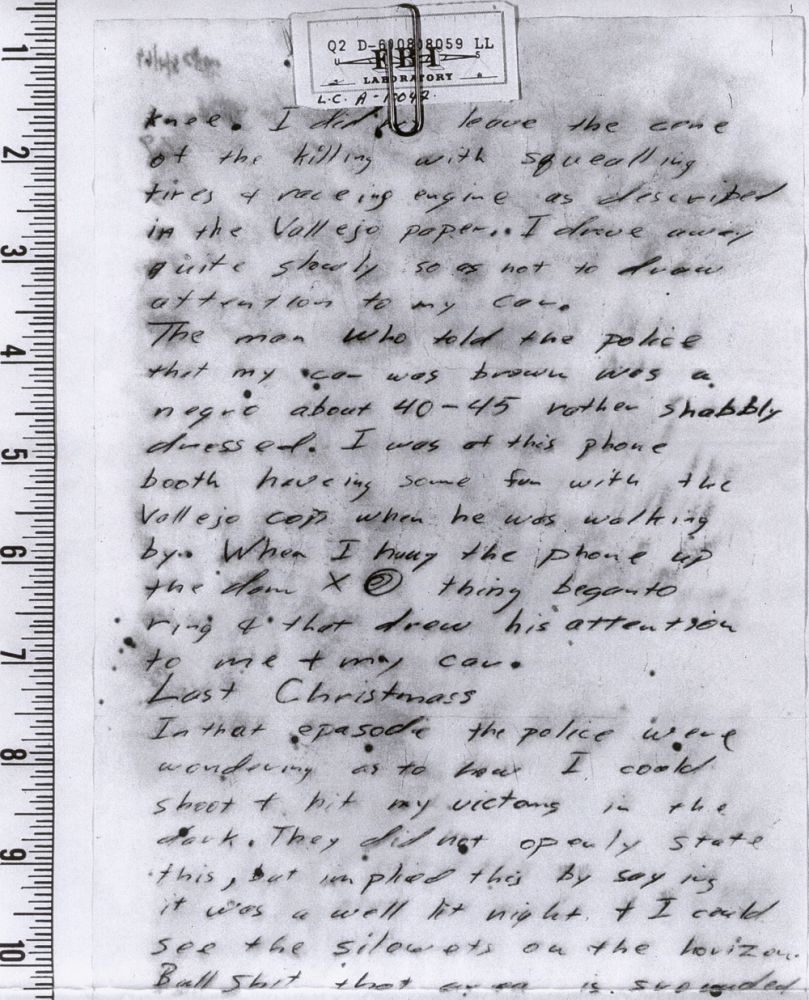 Q2 D-600808059 LL
FBI
LABORATORY
L.C. A-15042
knee. I did not leave the cene
of the killing with squealling
tires + raceing engine as described
in the Vallejo paper.. I drove away
quite slowly so as not to draw
attention to my car.
The man who told the police
that my car was brown was a
negro about 40-45 rather shabbly
dressed. I was at this phone
booth haveing some fun with the
Vallejo cops when he was walking
by. When I hung the phone up
the dam X thing beganto
ring & that drew his attention
to me + my car.
Last Christmass
In that epasode the police were
wondering as to how I could
shoot + hit my victoms in the
dark. They did not openly state
this, but implied this by saying
it was a well lit night + I could
see the silowets on the horizon.
Bullshit that area is srounded
1
2
3
4
5
6
7
8
9
10